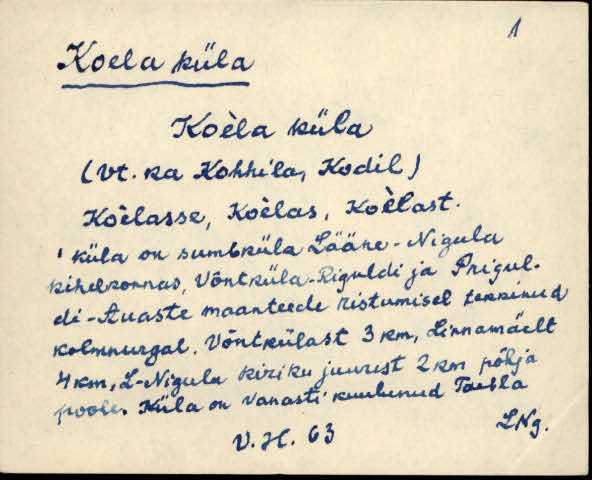 1
Koela küla
Koèla küla
(vt. ka Kohhila, Kodil)
Koèlasse, Koèlas, Koèlast.
' küla on sumbküla Lääne-Nigula
kihelkonnas, Võntküla-Riguldi ja Prigul-
di-Auaste maanteede ristumisel tekkinud
kolmnurgal. Võntkülast 3 km, Linnamäelt
4 km, L-Nigula kiriku juurest 2 km põhja
poole. Küla on vanasti kuulunud Taebla
V. H. 63
LNg.